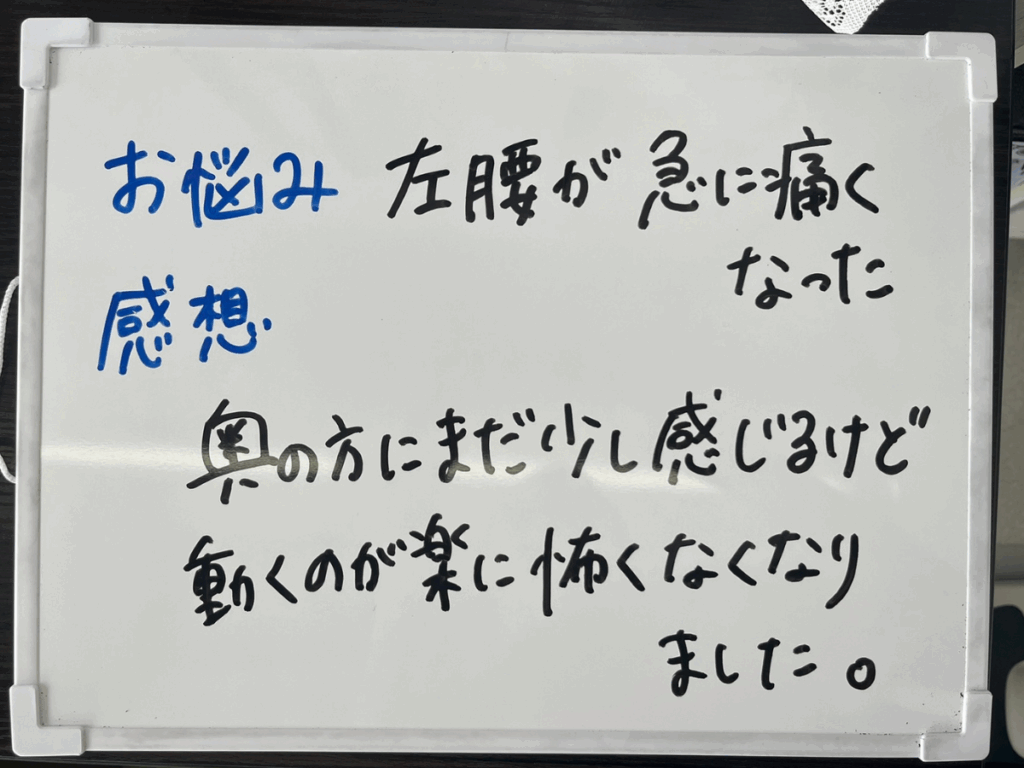 お悩み 左腰が急に痛く
なった
感想
奥の方にまだ少し感じるけど
動くのが楽に怖くなくなり
ました。